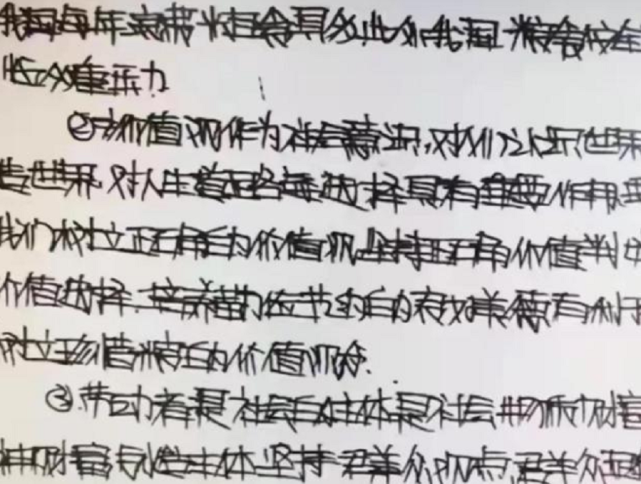 我国每年浪费粮食具多,此外我国粮食位在
临众重压力
②价值观作为社会意识,对人们认识世界
造世界,对人生道路的选择具有重要作用
我们树立正确的价值观,坚持正确价值判
价值选择,培养勤俭节约的良好美德,有利于
树立珍惜粮食的价值观念.
③劳动者是社会的主体,是社会物质财富
神财富创造主体,坚持群众观点,群众